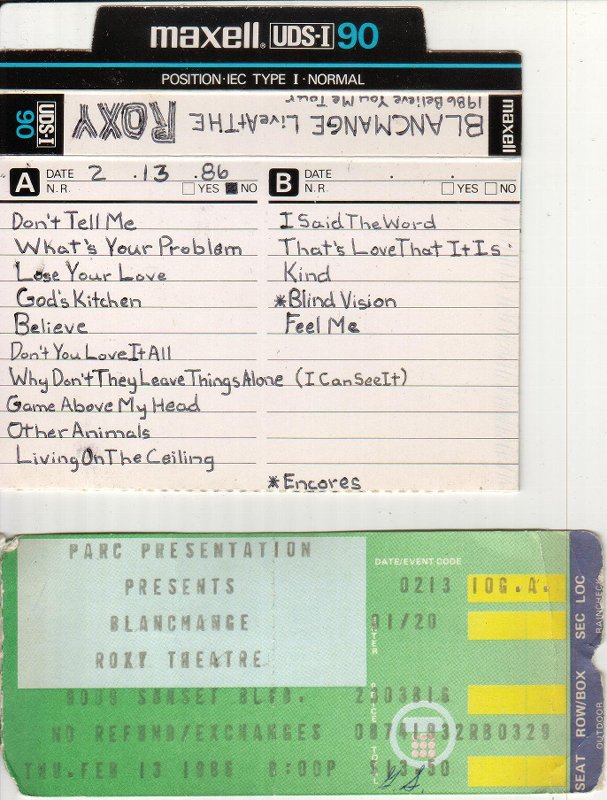 maxell® UDS-I 90
POSITION·IEC TYPE I·NORMAL
UDS-I 90
BLANCMANGE Live At THE ROXY
1986 Believe You Me Tour
maxell
A DATE 2 .13 .86
N.R. YES NO
B DATE . .
N.R. YES NO
Don't Tell Me
What's Your Problem
Lose Your Love
God's Kitchen
Believe
Don't You Love It All
Why Don't They Leave Things Alone (I Can See It)
Game Above My Head
Other Animals
Living On The Ceiling
I Said The Word
That's Love That It Is
Kind
*Blind Vision
Feel Me
*Encores
PARC PRESENTATION
PRESENTS
BLANCMANGE
ROXY THEATRE
SUNSET BLVD.
NO REFUND/EXCHANGES
THU. FEB 13 1986 8:00P
DATE/EVENT CODE
0213
01/20
$13.50
10G.A.
SEAT ROW/BOX SEC LOC
OUTDOOR RAINCHECK